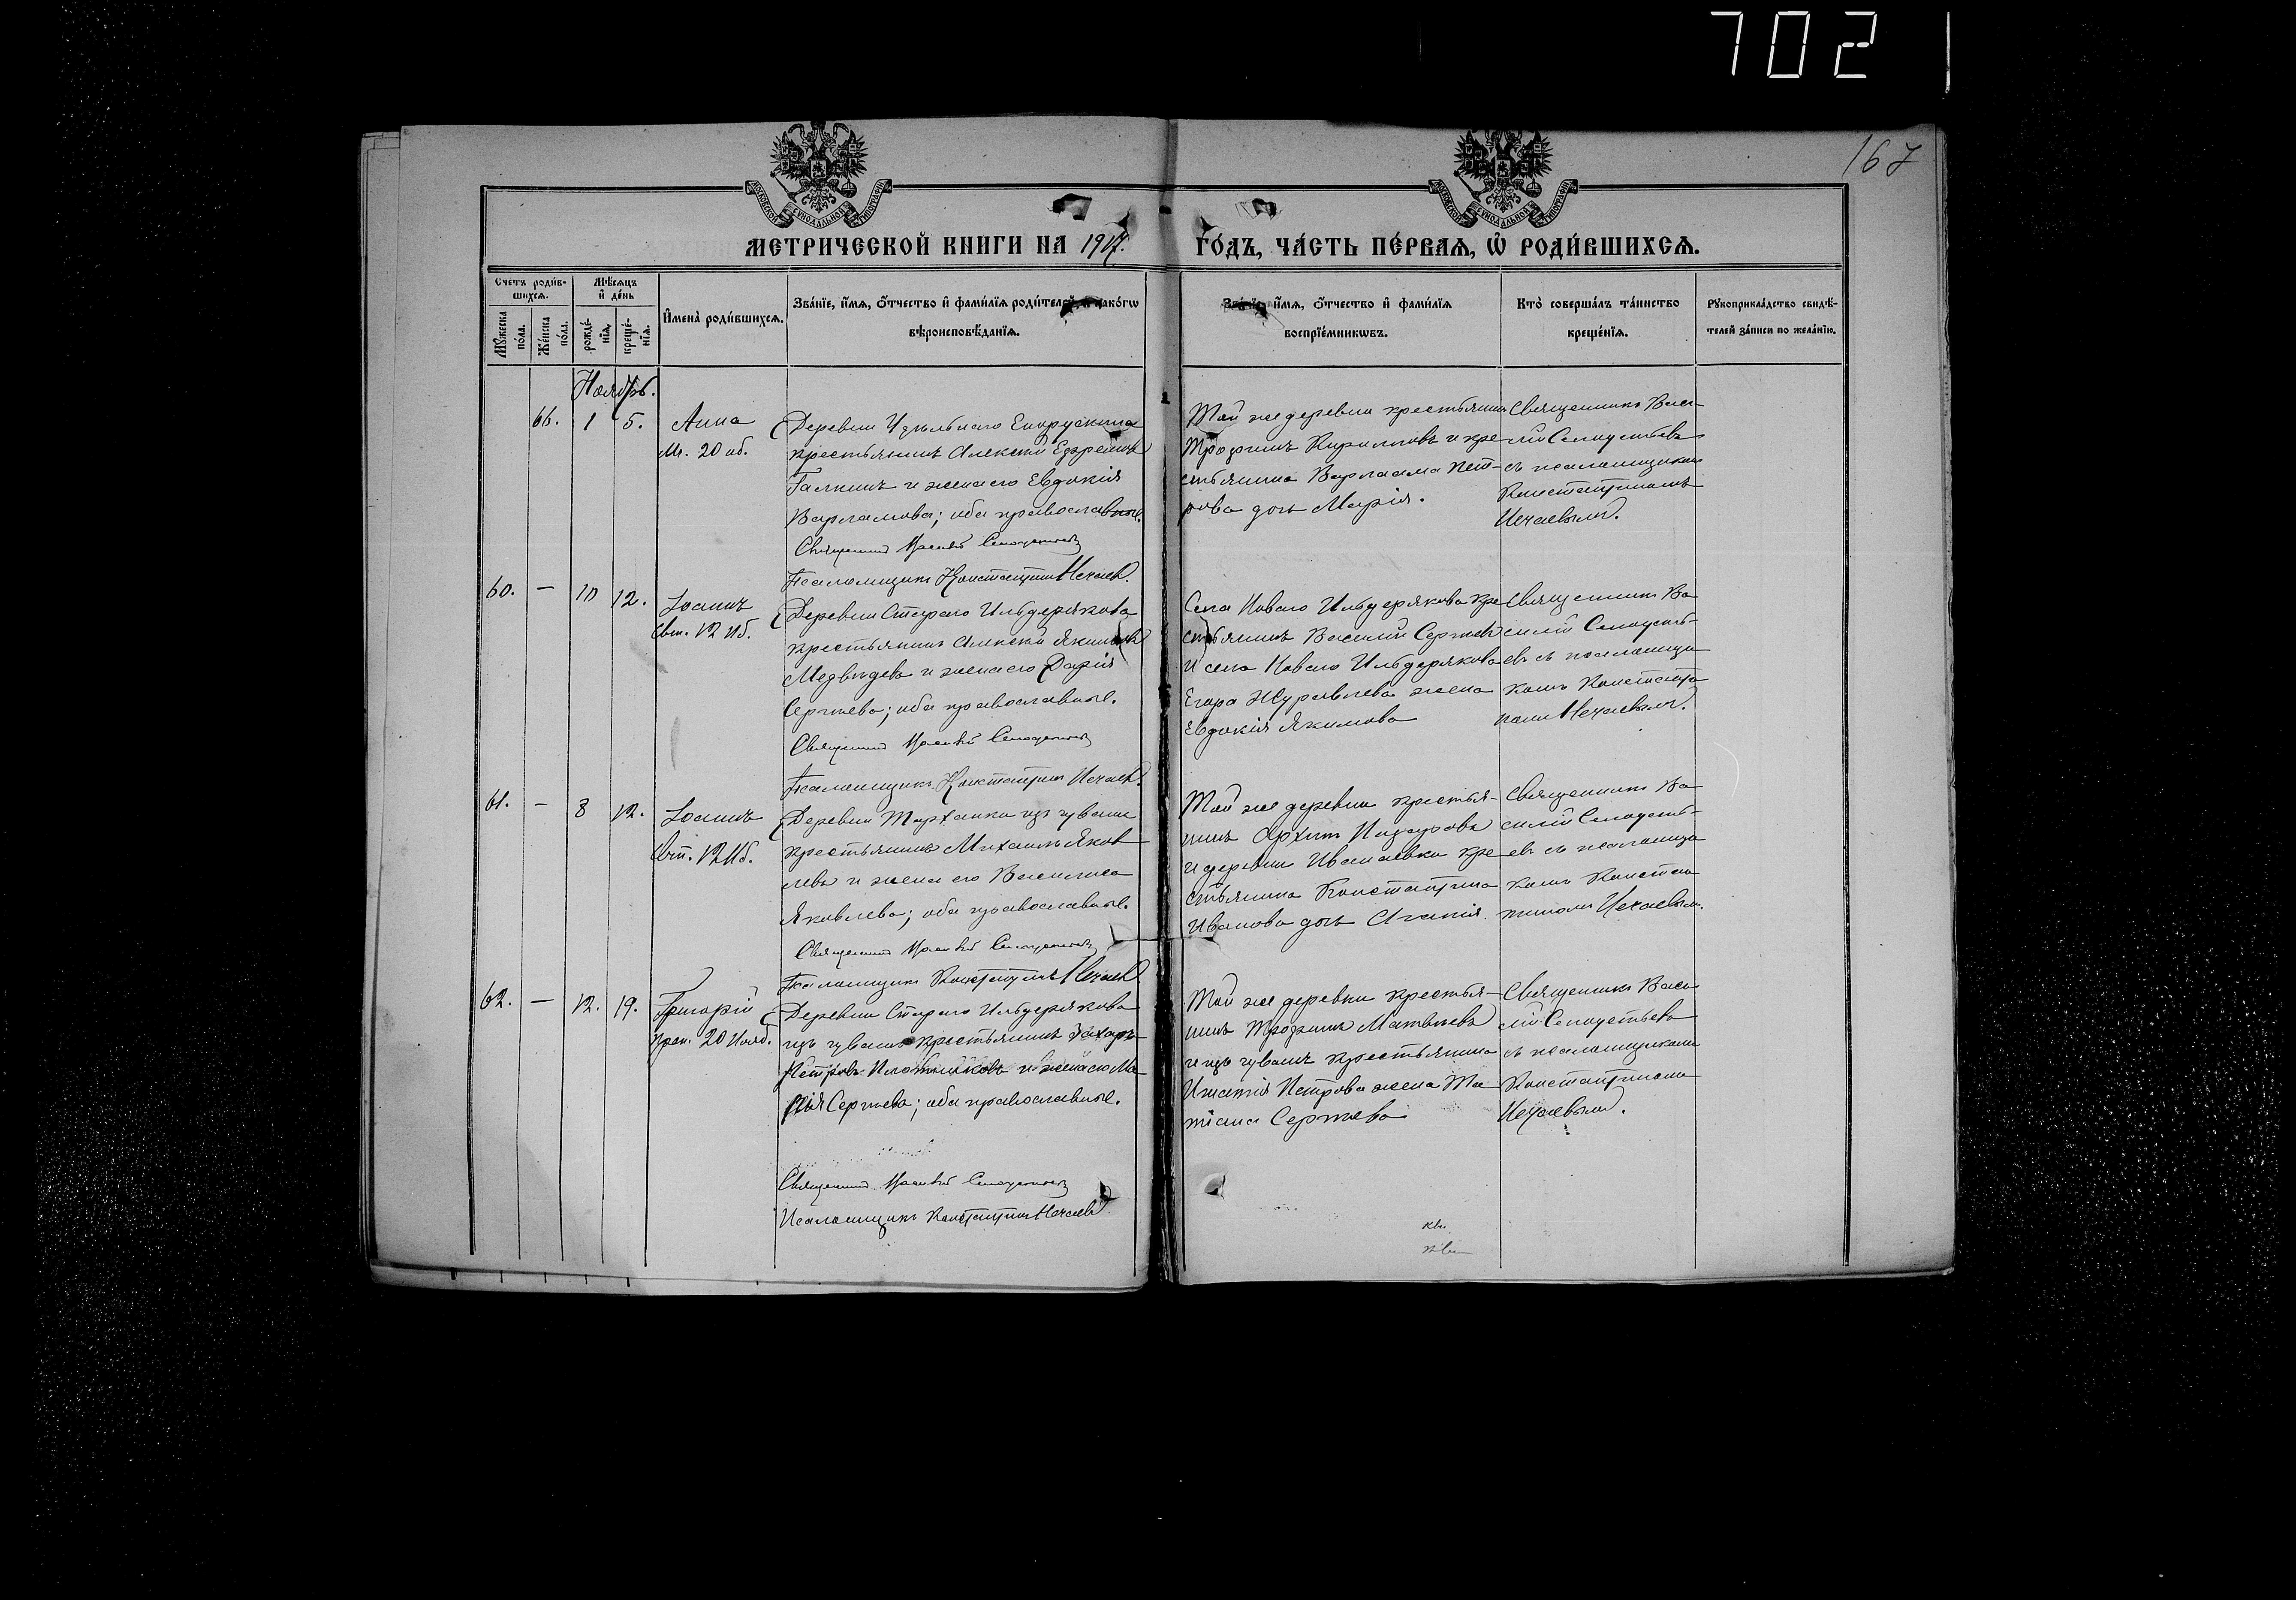 702
167
МОСКОВСКОЙ СУНОДАЛЬНОЙ ТИПОГРАФІИ
МОСКОВСКОЙ СУНОДАЛЬНОЙ ТИПОГРАФІИ
МЕТРИЧЕСКОЙ КНИГИ НА 1917.
ГО́ДЪ, ЧА́СТЬ ПЕ́РВАѦ, Ѿ РОДИ́ВШИХСѦ.
Счетъ роди́в-
шихсѧ.
Мѣсѧцъ
и҆ де́нь
Мꙋжеска
по́ла.
Же́нска
по́ла.
рожде́-
нїѧ.
креще́-
нїѧ.
И҆мена̀ роди́вшихсѧ.
Зва́нїе, и҆́мѧ, ѻ҆́тчество и҆ фами́лїѧ роди́телей, и како́гѡ
вѣроисповѣ́данїѧ.
Зва́нїе, и҆́мѧ, ѻ҆́тчество и҆ фами́лїѧ
воспрїе́мникѡвъ.
Кто̀ соверша́лъ та́инство
креще́нїѧ.
Рꙋкоприкла́дство свидѣ́-
телей за́писи по жела́нїю.
Ноябрь.
66. 1 5. Анна
Деревни Удѣльнаго Енорускина
крестьянинъ Алексѣй Ефремовъ
Галкинъ и жена его Евдокія
Варламова; оба православные.
Священникъ Василій
Псаломщикъ Константинъ Нечаевъ.
Той же деревни крестьянинъ
Трофимъ Кирилловъ и кре-
стьянина Варлаама Пет-
рова дочь Марія.
Священникъ Васи-
съ псаломщикомъ
Константиномъ
Нечаевымъ.
60. — 10 12. Іоаннъ
Деревни Стараго Ильдерякова
крестьянинъ Алексѣй Якимовъ
Медвѣдевъ и жена его Дарія
Сергѣева; оба православные.
Священникъ Василій
Псаломщикъ Константинъ Нечаевъ.
Села Новаго Ильдерякова кре
стьянинъ Василій Сергѣевъ
и села Новаго Ильдерякова
Егора Журавлева жена
Евдокія Якимова
Священникъ Ва
силій
евъ съ псаломщи
комъ Константи
номъ Нечаевымъ.
61. — 8 12. Іоаннъ
Деревни Тарханки изъ чувашъ
крестьянинъ Михаилъ Яков
левъ и жена его Василиса
Яковлева; оба православные.
Священникъ Василій
Псаломщикъ Константинъ Нечаевъ
Той же деревни крестья-
нинъ Архипъ Назаровъ
и деревни Ивашевки кре
стьянина Константина
Иванова дочь Агапія.
Священникъ Ва
силій
евъ съ псаломщи
комъ Констан
тиномъ Нечаевым.
62. — 12. 19. Григорій
Деревни Стараго Ильдерякова
изъ чувашъ крестьянинъ Захаръ
Петровъ Плотниковъ и жена его Ма
рія Сергѣева; оба православные.
Священникъ Василій
Псаломщикъ Константинъ Нечаевъ.
Той же деревни крестья-
нинъ Трофимъ Матвѣевъ
и изъ чувашъ крестьянина
Игнатія Петрова жена Та
тіана Сергѣева
Священникъ Васи
съ псаломщикомъ
Константиномъ
Нечаевымъ.